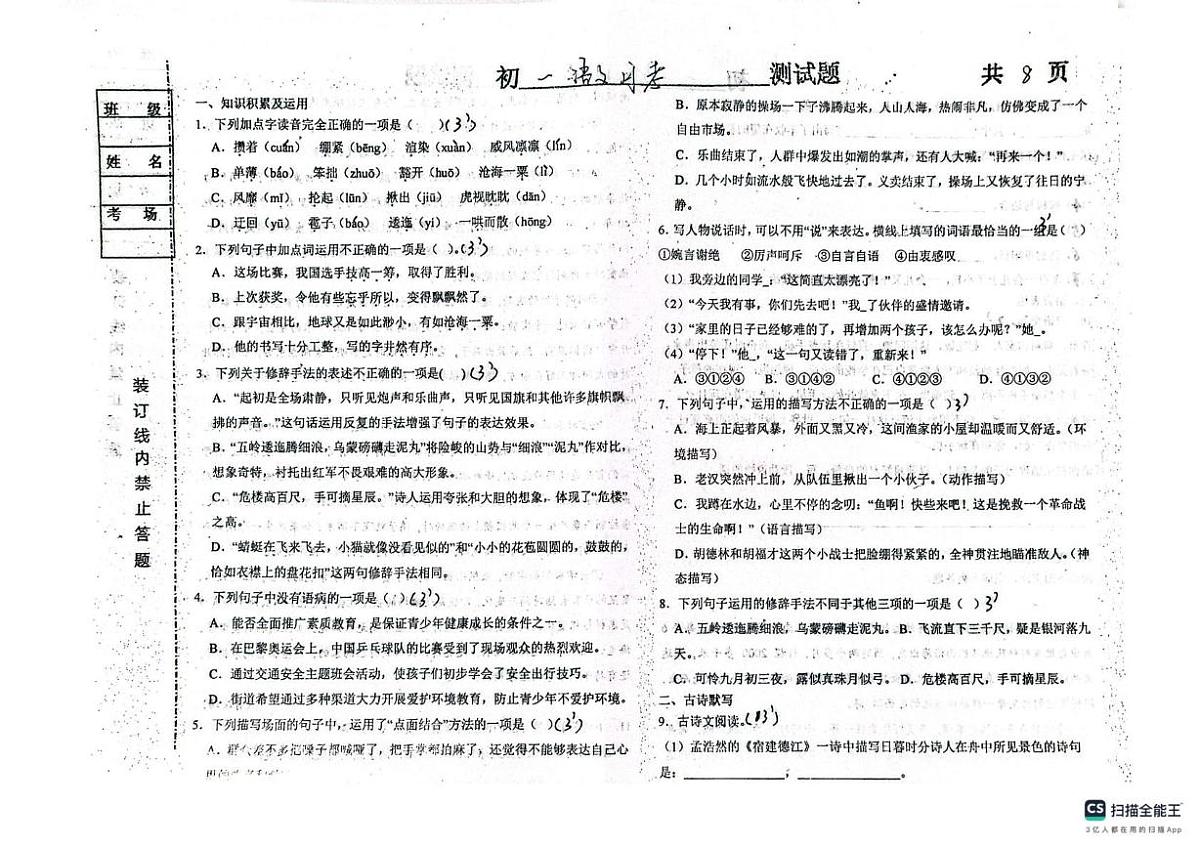 初一语文月考 测试题 共 8 页
班 级
姓 名
考 场
装订线内禁止答题
一、知识积累及运用
1、下列加点字读音完全正确的一项是（ ）(3')
A．攒着（cuán） 绷紧（bēng） 渲染（xuàn） 威风凛凛（lǐn）
B．单薄（báo） 笨拙（zhuō） 豁开（huō） 沧海一粟（lì）
C．风靡（mǐ） 抡起（lūn） 揪出（jiū） 虎视眈眈（dān）
D．迂回（yū） 雹子（báo） 逶迤（yí） 一哄而散（hōng）
2．下列句子中加点词运用不正确的一项是（ ）。(3')
A．这场比赛，我国选手技高一筹，取得了胜利。
B．上次获奖，令他有些忘乎所以，变得飘飘然了。
C．跟宇宙相比，地球又是如此渺小，有如沧海一粟。
D．他的书写十分工整，写的字井然有序。
3．下列关于修辞手法的表述不正确的一项是( ）(3')
A．“起初是全场肃静，只听见炮声和乐曲声，只听见国旗和其他许多旗帜飘
拂的声音。”这句话运用反复的手法增强了句子的表达效果。
B．“五岭逶迤腾细浪，乌蒙磅礴走泥丸”将险峻的山势与“细浪”“泥丸”作对比，
想象奇特，衬托出红军不畏艰难的高大形象。
C．“危楼高百尺，手可摘星辰。”诗人运用夸张和大胆的想象，体现了“危楼”
之高。
D．“蜻蜓在飞来飞去，小猫就像没看见似的”和“小小的花苞圆圆的，鼓鼓的，
恰如衣襟上的盘花扣”这两句修辞手法相同。
4．下列句子中没有语病的一项是（ ）(3')
A．能否全面推广素质教育，是保证青少年健康成长的条件之一。
B．在巴黎奥运会上，中国乒乓球队的比赛受到了现场观众的热烈欢迎。
C．通过交通安全主题班会活动，使孩子们初步学会了安全出行技巧。
D．街道希望通过多种渠道大力开展爱护环境教育，防止青少年不爱护环境。
5．下列描写场面的句子中，运用了“点面结合”方法的一项是（ ）(3')
A．群众差不多把嗓子都喊哑了，把手掌都拍麻了，还觉得不能够表达自己心
B．原本寂静的操场一下子沸腾起来，人山人海，热闹非凡，仿佛变成了一个
自由市场。
C．乐曲结束了，人群中爆发出如潮的掌声，还有人大喊：“再来一个！”
D．几个小时如流水般飞快地过去了。义卖结束了，操场上又恢复了往日的宁
静。
6．写人物说话时，可以不用“说”来表达。横线上填写的词语最恰当的一组是（ ）3'
①婉言谢绝 ②厉声呵斥 ③自言自语 ④由衷感叹
（1）我旁边的同学_，“这简直太漂亮了！”
（2）“今天我有事，你们先去吧！”我_了伙伴的盛情邀请。
（3）“家里的日子已经够难的了，再增加两个孩子，该怎么办呢？”她_。
（4）“停下！”他_，“这一句又读错了，重新来！”
A．③①②④ B．③①④② C．④①②③ D．④①③②
7．下列句子中，运用的描写方法不正确的一项是（ ）3'
A．海上正起着风暴，外面又黑又冷，这间渔家的小屋却温暖而又舒适。（环
境描写）
B．老汉突然冲上前，从队伍里揪出一个小伙子。（动作描写）
C．我蹲在水边，心里不停的念叨：“鱼啊！快些来吧！这是挽救一个革命战
士的生命啊！”（语言描写）
D．胡德林和胡福才这两个小战士把脸绷得紧紧的，全神贯注地瞄准敌人。（神
态描写）
8．下列句子运用的修辞手法不同于其他三项的一项是（ ）3'
A．五岭逶迤腾细浪，乌蒙磅礴走泥丸。B．飞流直下三千尺，疑是银河落九
天。
C．可怜九月初三夜，露似真珠月似弓。D．危楼高百尺，手可摘星辰。
二、古诗默写
9．古诗文阅读。(13')
（1）孟浩然的《宿建德江》一诗中描写日暮时分诗人在舟中所见景色的诗句
是：____________，____________。
CS 扫描全能王
3亿人都在用的扫描App